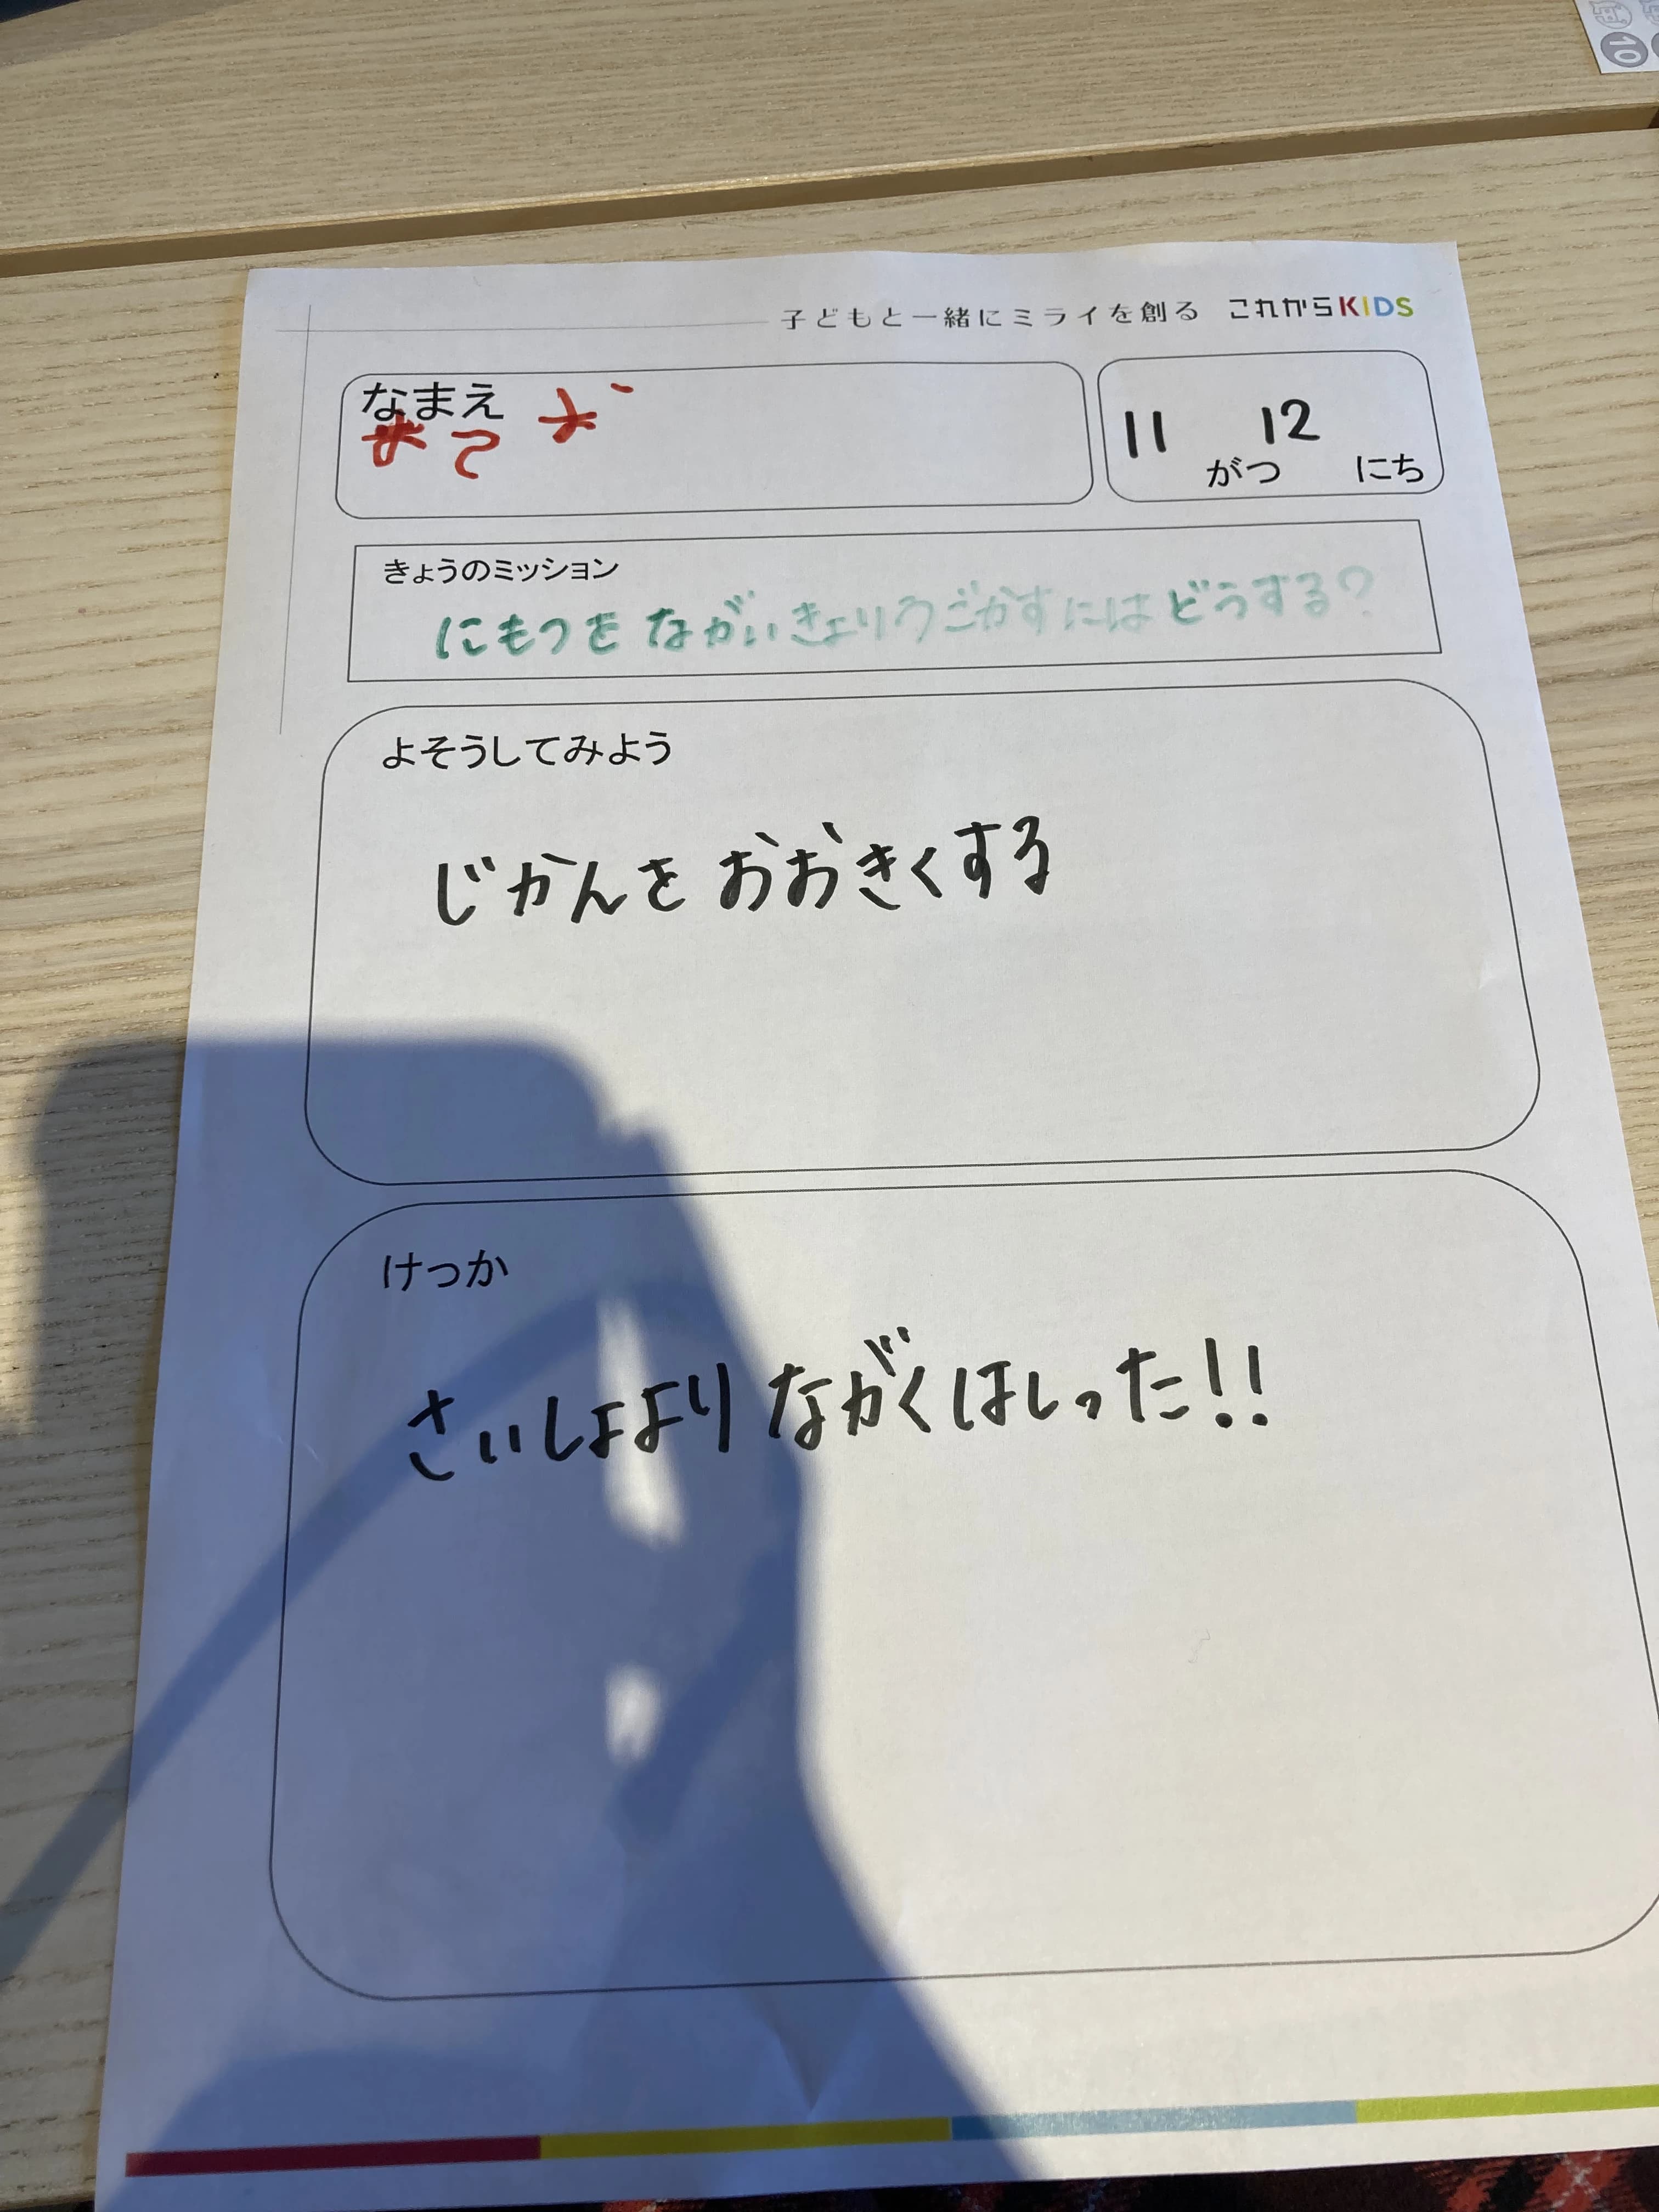 子どもと一緒にミライを創る これからKIDS
なまえ
11 がつ 12 にち
きょうのミッション
にもつを ながいきょりうごかすには どうする?
よそうしてみよう
じかんを おおきくする
けっか
さいしょより ながくはしった!!
10